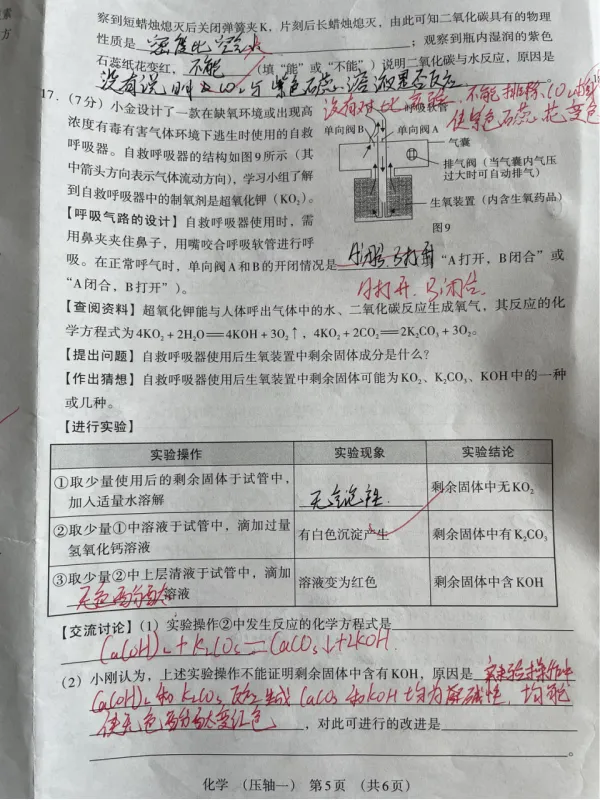 察到短蜡烛熄灭后关闭弹簧夹K，片刻后长蜡烛熄灭，由此可知二氧化碳具有的物理
性质是 密度比空气大 ；观察到瓶内湿润的紫色
石蕊纸花变红，不能（填“能”或“不能”）说明二氧化碳与水反应，原因是
没有对比实验，不能排除CO2
使紫色石蕊花变色
17.（7分）小金设计了一款在缺氧环境或出现高
浓度有毒有害气体环境下逃生时使用的自救
呼吸器。自救呼吸器的结构如图9所示（其
中箭头方向表示气体流动方向），学习小组了解
到自救呼吸器中的制氧剂是超氧化钾（KO₂）。
呼吸软管
单向阀B 单向阀A
气囊
排气阀（当气囊内气压
过大时可自动排气）
生氧装置（内含生氧药品）
图9
【呼吸气路的设计】自救呼吸器使用时，需
用鼻夹夹住鼻子，用嘴咬合呼吸软管进行呼
吸。在正常呼气时，单向阀A和B的开闭情况是 “A打开，B闭合”或
“A闭合，B打开”）。
A打开，B闭合
【查阅资料】超氧化钾能与人体呼出气体中的水、二氧化碳反应生成氧气，其反应的化
学方程式为4KO₂+2H₂O══4KOH+3O₂↑，4KO₂+2CO₂══2K₂CO₃+3O₂。
【提出问题】自救呼吸器使用后生氧装置中剩余固体成分是什么？
【作出猜想】自救呼吸器使用后生氧装置中剩余固体可能为KO₂、K₂CO₃、KOH中的一种
或几种。
【进行实验】
实验操作 实验现象 实验结论
①取少量使用后的剩余固体于试管中，
加入适量水溶解 无气泡产生 剩余固体中无KO₂
②取少量①中溶液于试管中，滴加过量
氢氧化钙溶液 有白色沉淀产生 剩余固体中有K₂CO₃
③取少量②中上层清液于试管中，滴加
无色酚酞溶液 溶液变为红色 剩余固体中含KOH
【交流讨论】（1）实验操作②中发生反应的化学方程式是
Ca(OH)₂+K₂CO₃=CaCO₃↓+2KOH.
（2）小刚认为，上述实验操作不能证明剩余固体中含有KOH，原因是 实验操作中
Ca(OH)₂和K₂CO₃反应生成CaCO₃和KOH均为碱性，均能
使无色酚酞变红色 ，对此可进行的改进是
。
化学 （压轴一） 第5页 （共6页）